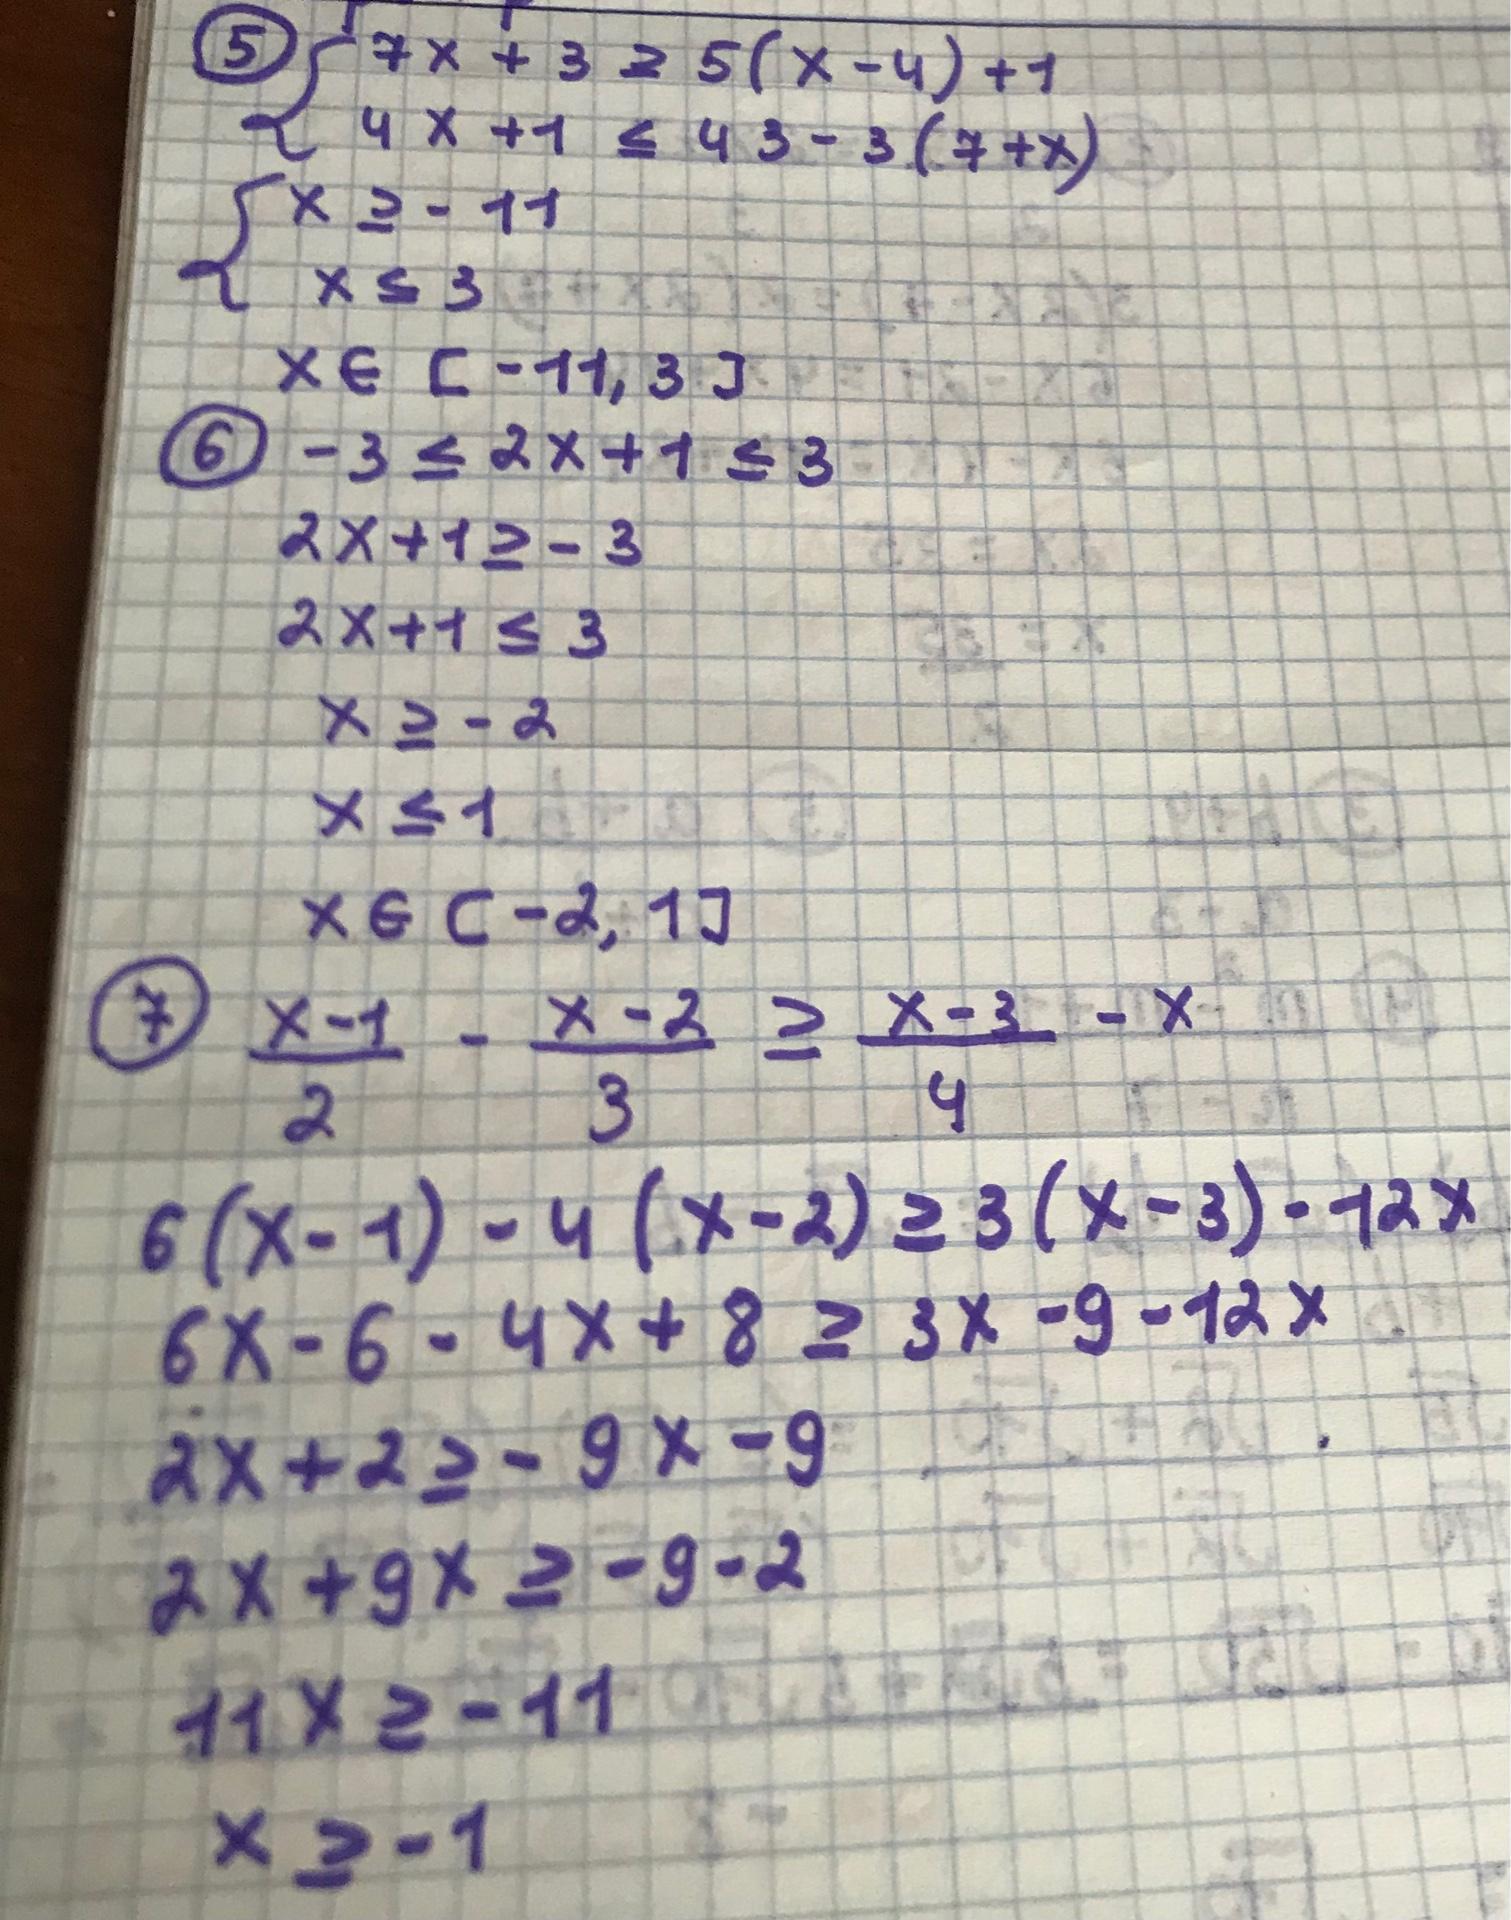 ⑤ { 7x + 3 ≥ 5(x - 4) + 1
4x + 1 ≤ 43 - 3(7 + x)
{ x ≥ - 11
x ≤ 3
x ∈ [ -11, 3 ]
⑥ -3 ≤ 2x + 1 ≤ 3
2x + 1 ≥ - 3
2x + 1 ≤ 3
x ≥ - 2
x ≤ 1
x ∈ [ -2, 1 ]
⑦ (x-1)/2 - (x-2)/3 ≥ (x-3)/4 - x
6(x-1) - 4(x-2) ≥ 3(x-3) - 12x
6x - 6 - 4x + 8 ≥ 3x - 9 - 12x
2x + 2 ≥ - 9x - 9
2x + 9x ≥ -9 - 2
11x ≥ -11
x ≥ -1